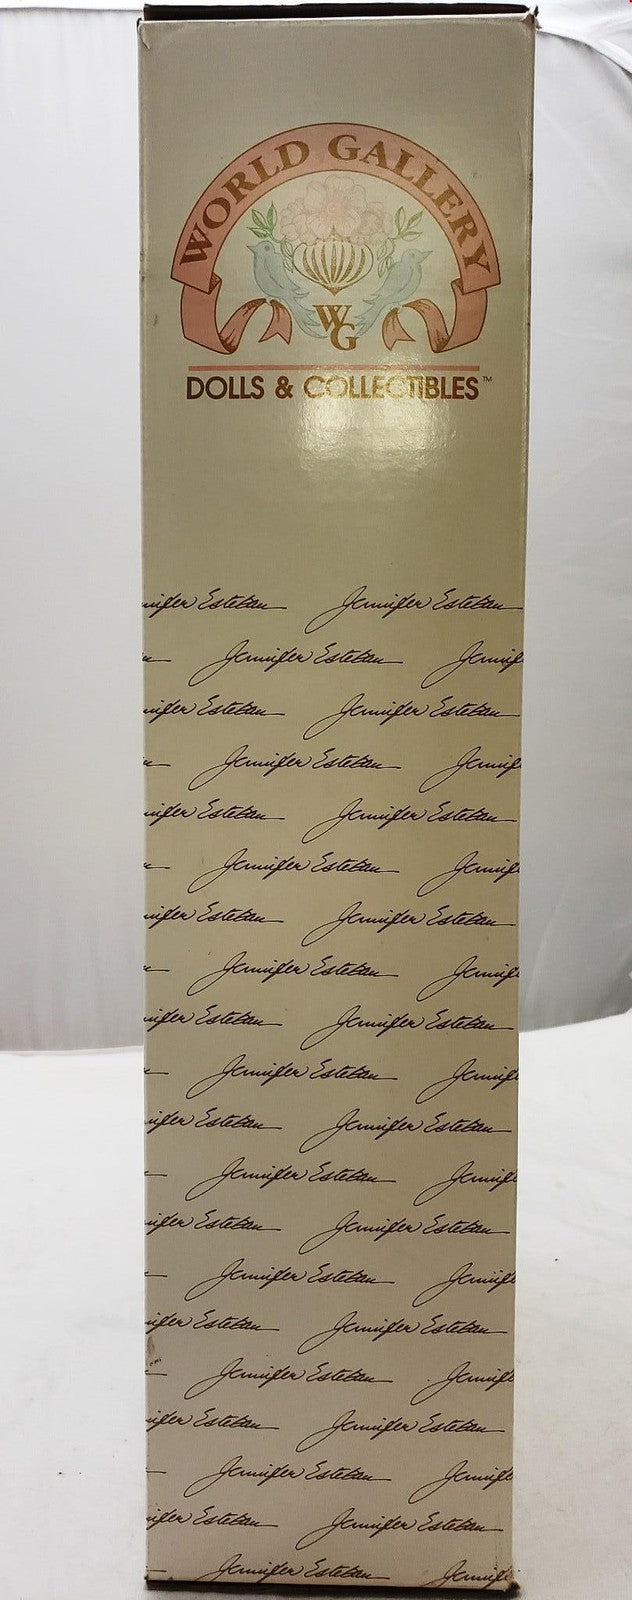 WORLD GALLERY
WG
DOLLS & COLLECTIBLES™
nifer Esteban Jennifer Esteban
n Jennifer Esteban Jennif
nifer Esteban Jennifer Esteban
n Jennifer Esteban Jennif
nifer Esteban Jennifer Esteban
n Jennifer Esteban Jennif
nifer Esteban Jennifer Esteban
n Jennifer Esteban Jennif
nifer Esteban Jennifer Esteban
n Jennifer Esteban Jennif
nifer Esteban Jennifer Esteban
Jennifer Esteban Jennif
nifer Esteban Jennifer Esteban
Jennifer Esteban Jennif
nifer Esteban Jennifer Esteban
Jennifer Esteban Jennif
nifer Esteban Jennifer Esteban
Jennifer Esteban Jennif
nifer Esteban Jennifer Esteban
Jennifer Esteban Jennif